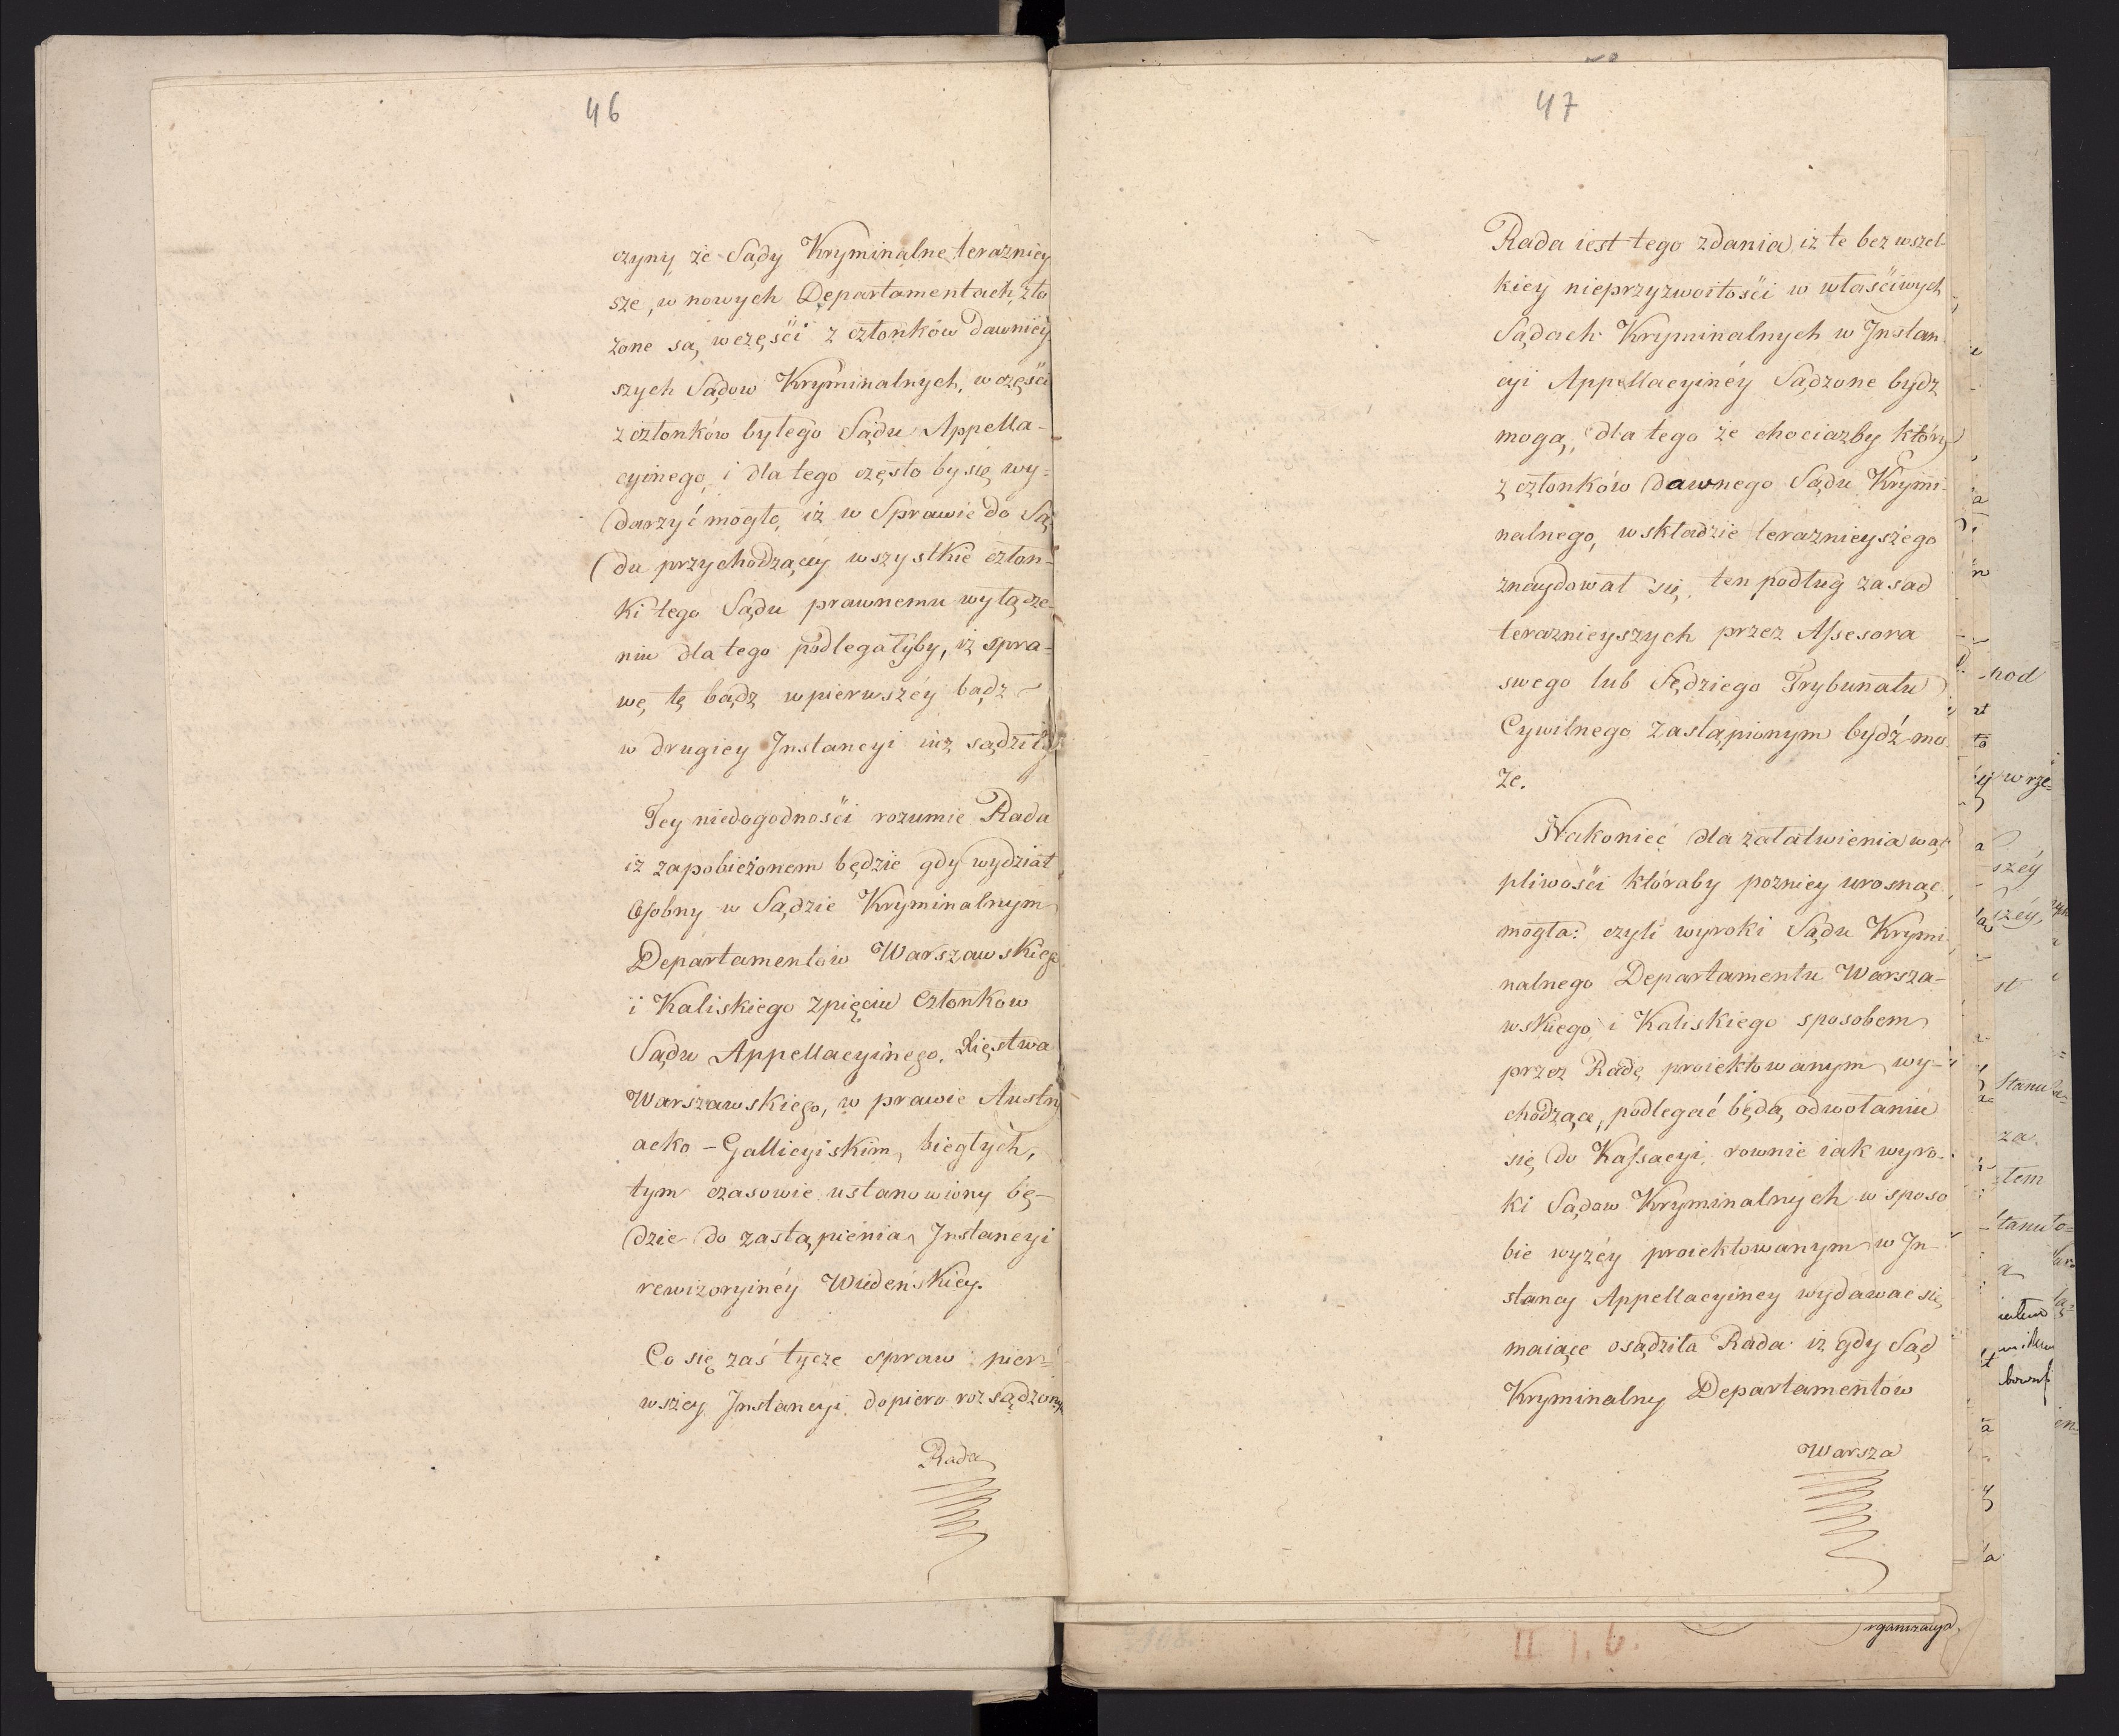 46
czyny że Sądy Kryminalne teraźniey
sze, w nowych Departamentach zło
żone są, w części z członków dawniey
szych Sądow Kryminalnych, w części
z członków byłego Sądu Appella-
cyinego, i dla tego często by się wy=
darzyć mogło, iż w Sprawie do Są
du przychodzącey wszystkie człon=
ki tego Sądu prawnemu wyłącze-
niu dla tego podlegałyby, iż spra=
wę tę bądz w pierwszéy bądz
w drugiey Instancyi iuż sądziły
Tey niedogodności rozumie Rada
iż zapobieżonem będzie gdy wydział
Osobny w Sądzie Kryminalnym
Departamentów Warszawskiego
i Kaliskiego z pięciu Członkow
Sądu Appellacyinego Xięstwa
Warszawskiego, w prawie Austry
acko-Gallicyiskim biegłych,
tym czasowie ustanowiony bę-
dzie do zastąpienia Instancyi
rewizoryinéy Wiedeńskiey.
Co się zaś tycze spraw pier=
wszey Instancyi dopiero rozsądzonych
Rada
47
Rada iest tego zdania iż te bez wszel-
kiey nieprzyzwoitości w właściwych
Sądach Kryminalnych w Instan
cyi Appellacyinéy Sądzone bydz
mogą, dla tego że chociazby który
z członków dawnego Sądu Krymi-
nalnego, w składzie teraznieyszego
znaydował się, ten podług zasad
teraznieyszych przez Assesora
swego lub Sędziego Trybunału
Cywilnego zastąpionym bydź mo
że.
Nakoniec dla załatwienia wąt
pliwości któraby pozniey urosnąc
mogła: czyli wyroki Sądu Krymi
nalnego Departamentu Warsza-
wskiego i Kaliskiego sposobem
przez Radę proiektowanym wy-
chodzące, podlegać będą odwołaniu
się do Kassacyi, rownie iak wyro-
ki Sądow Kryminalnych w sposo
bie wyzéy proiektowanym w In-
stancy Appellacyiney wydawac się
maiące osądziła Rada iż gdy Sąd
Kryminalny Departamentów
Warsza